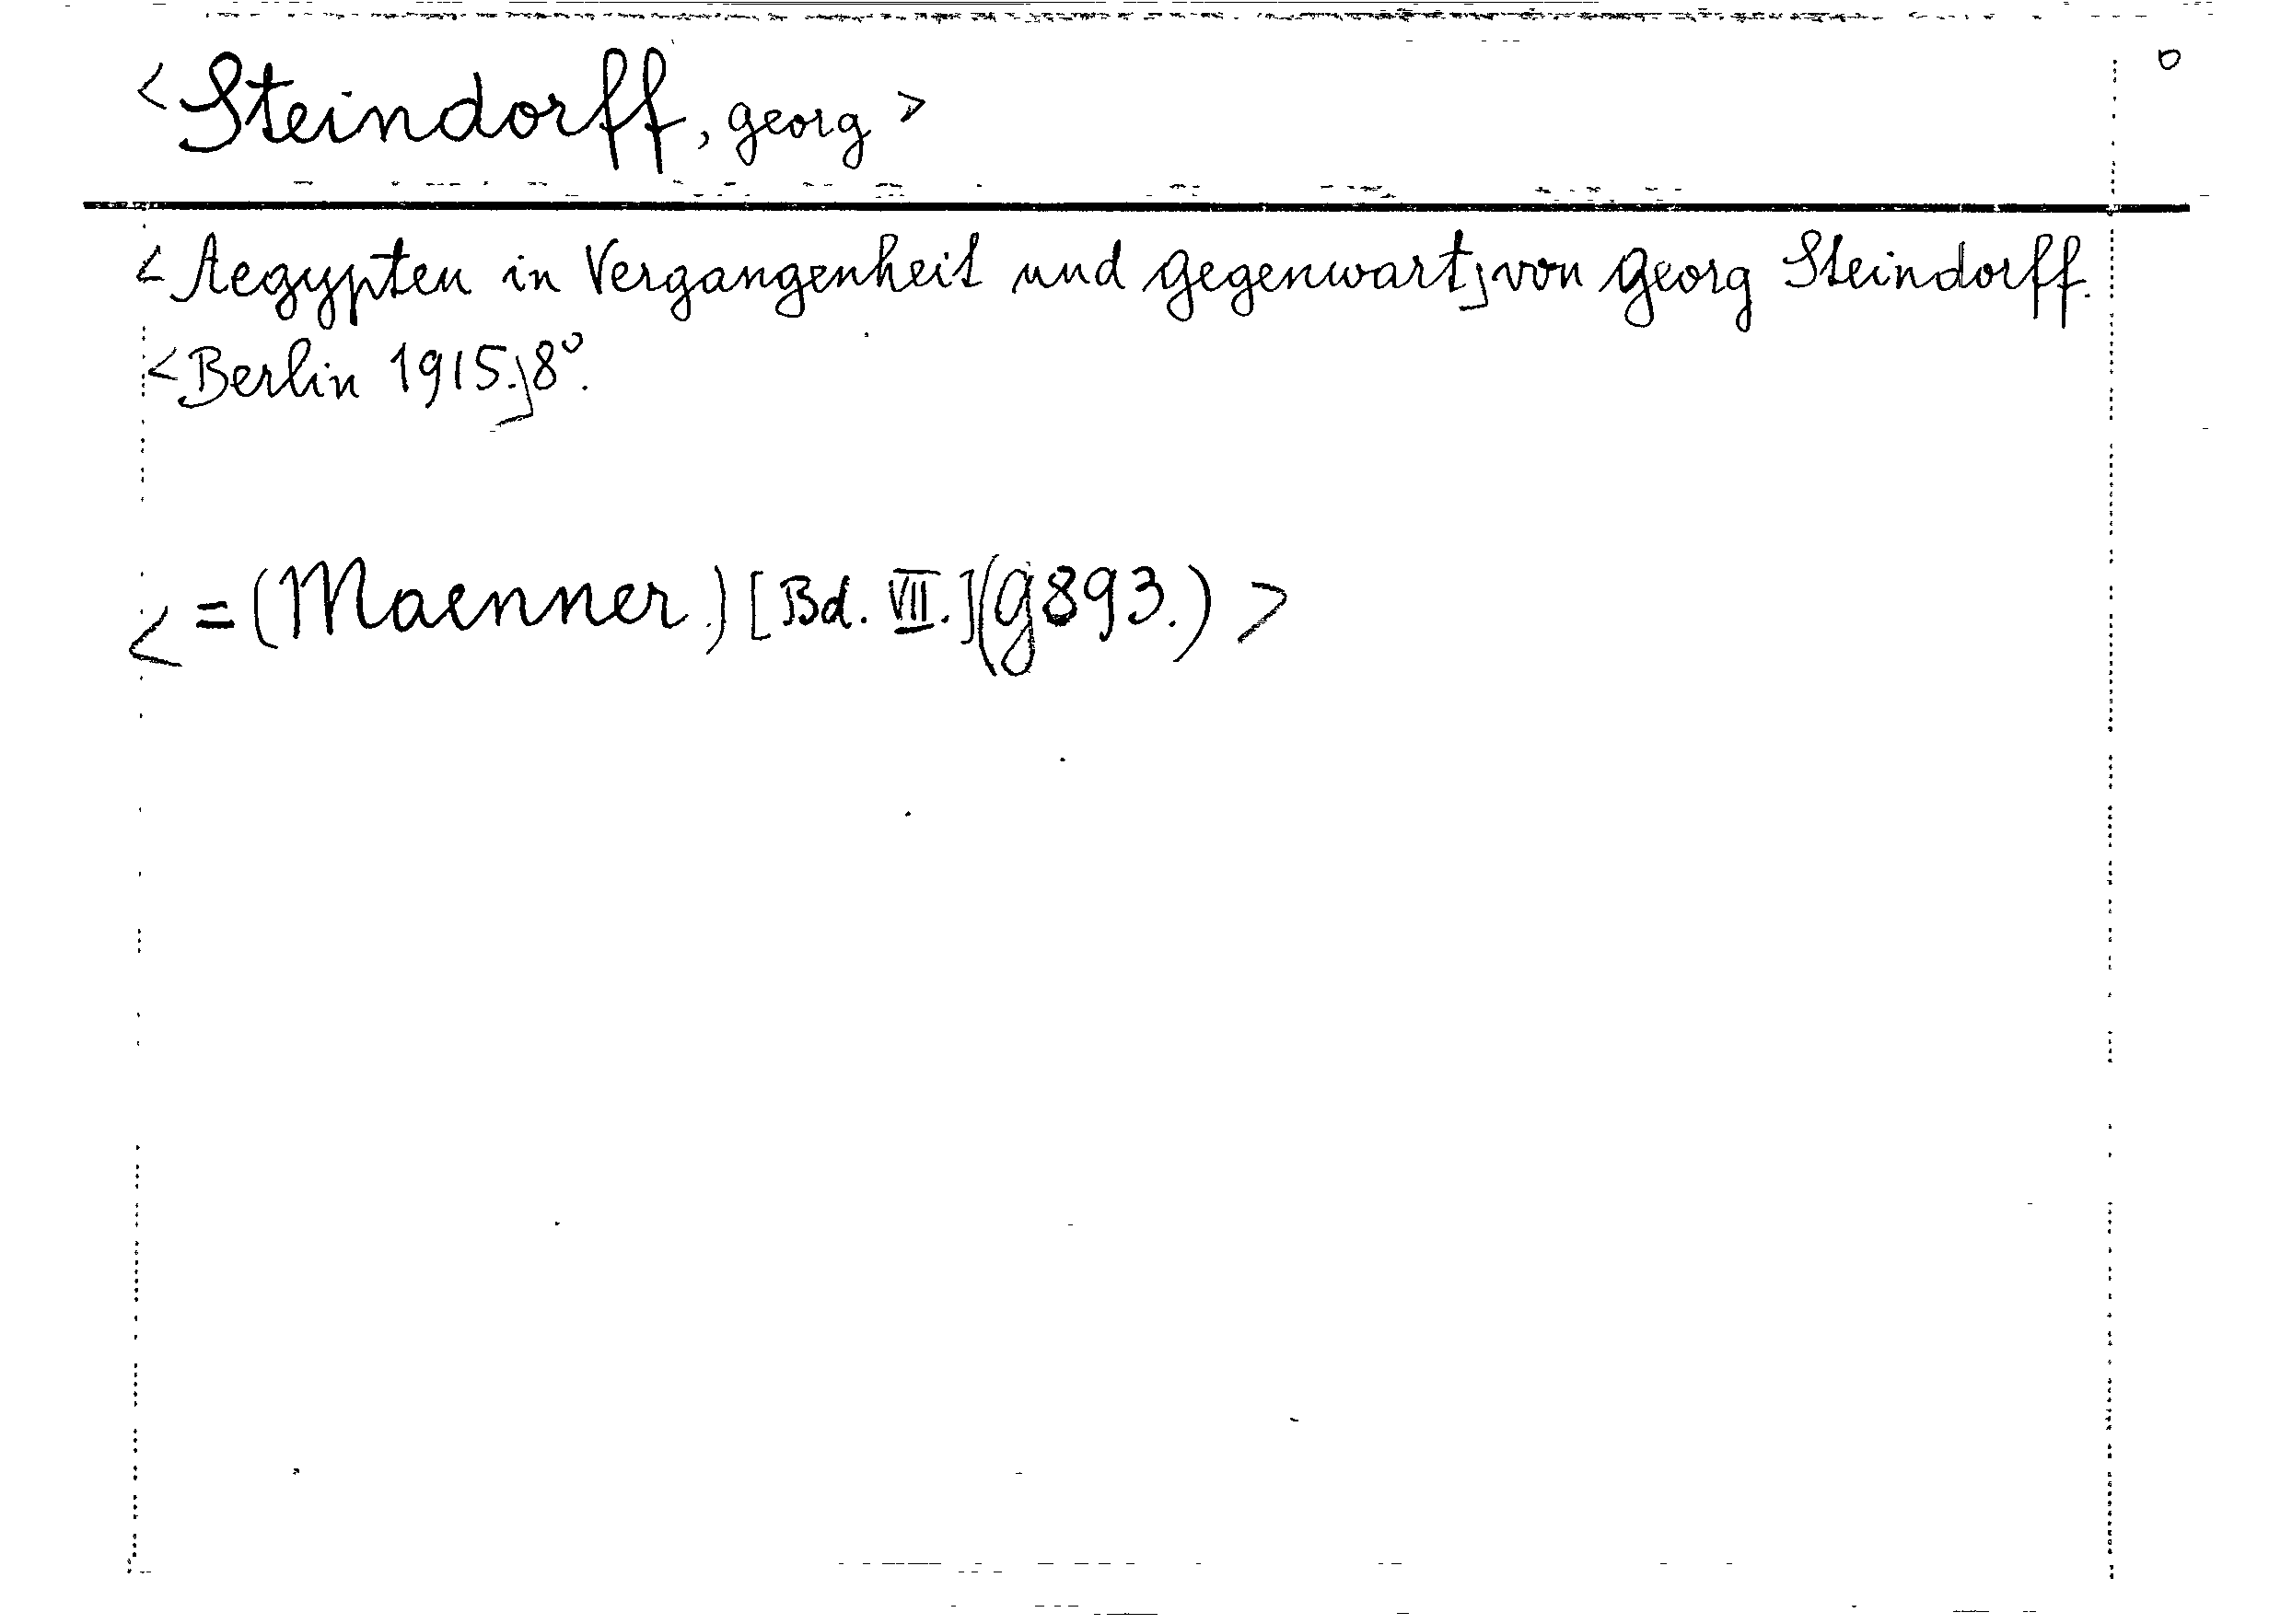 <Steindorff, Georg>
<Aegypten in Vergangenheit und Gegenwart,] von Georg Steindorff.
<Berlin 1915.] 8°.
<=(Maenner.) [Bd. VII.] (G893.)>